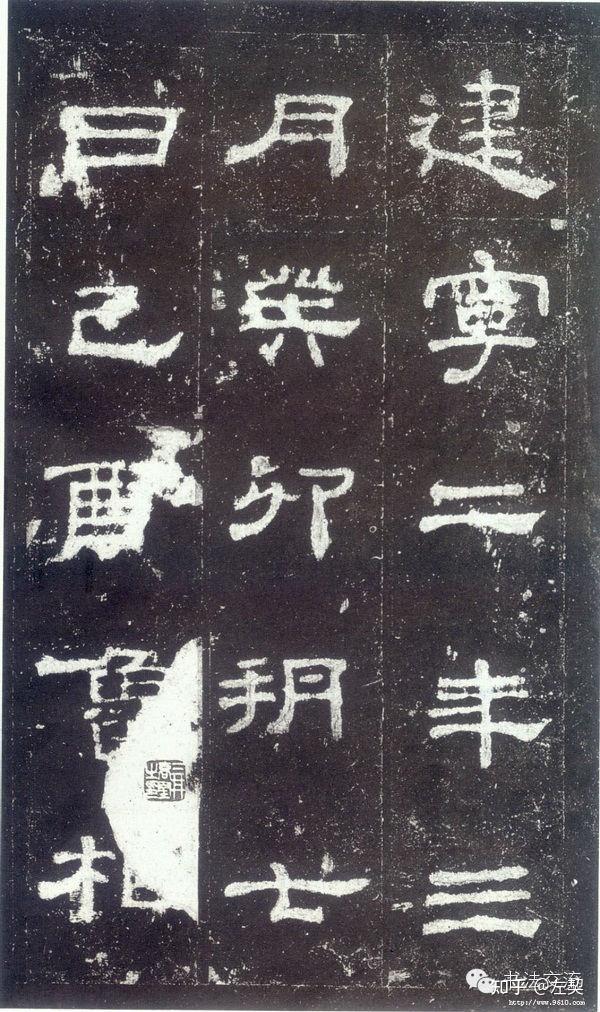 建寧二年三
月癸卯朔七
日己酉魯相
书法交流
知乎 @左
http://www.9610.com